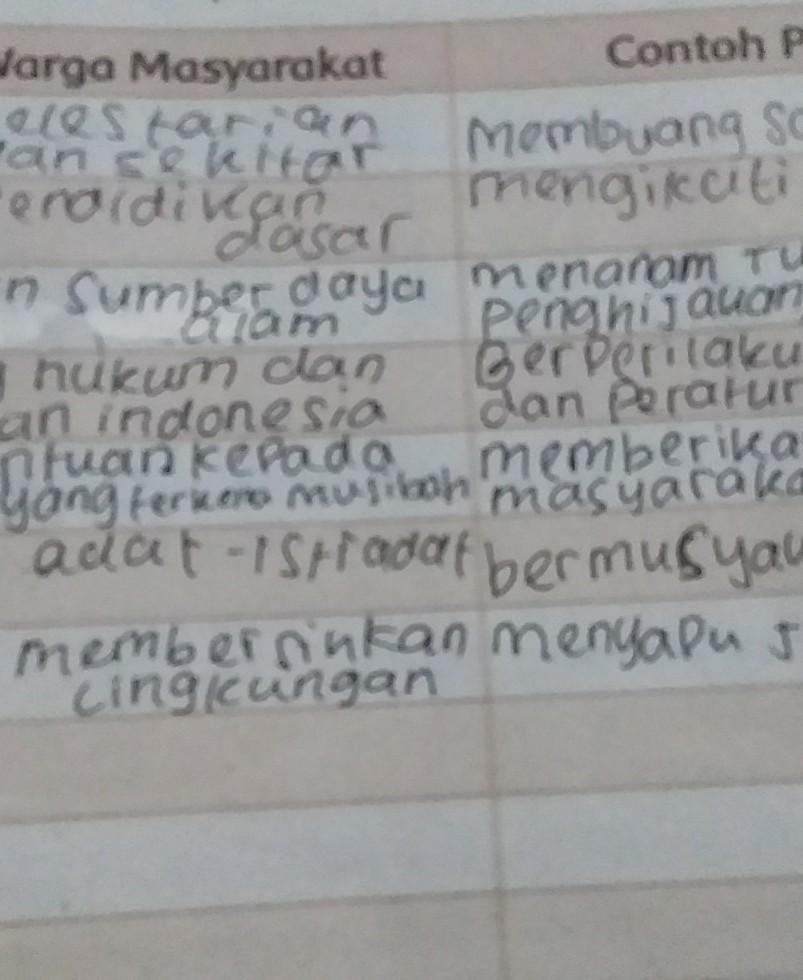 Warga Masyarakat Contoh P
elestarian
an sekitar
Membuang sa
endidikan
dasar
mengikuti
n sumber daya
alam
menanam tu
penghijauan
hukum dan
an indonesia
Berperilaku
dan Peratur
ntuan kepada
yang terkena musibah
memberika
masyaraka
adat-istiadat
bermusyaw
membersihkan
lingkungan
menyapu s